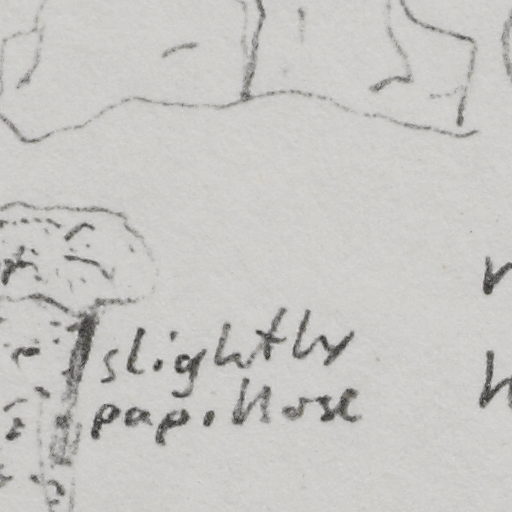 slightly
papillose